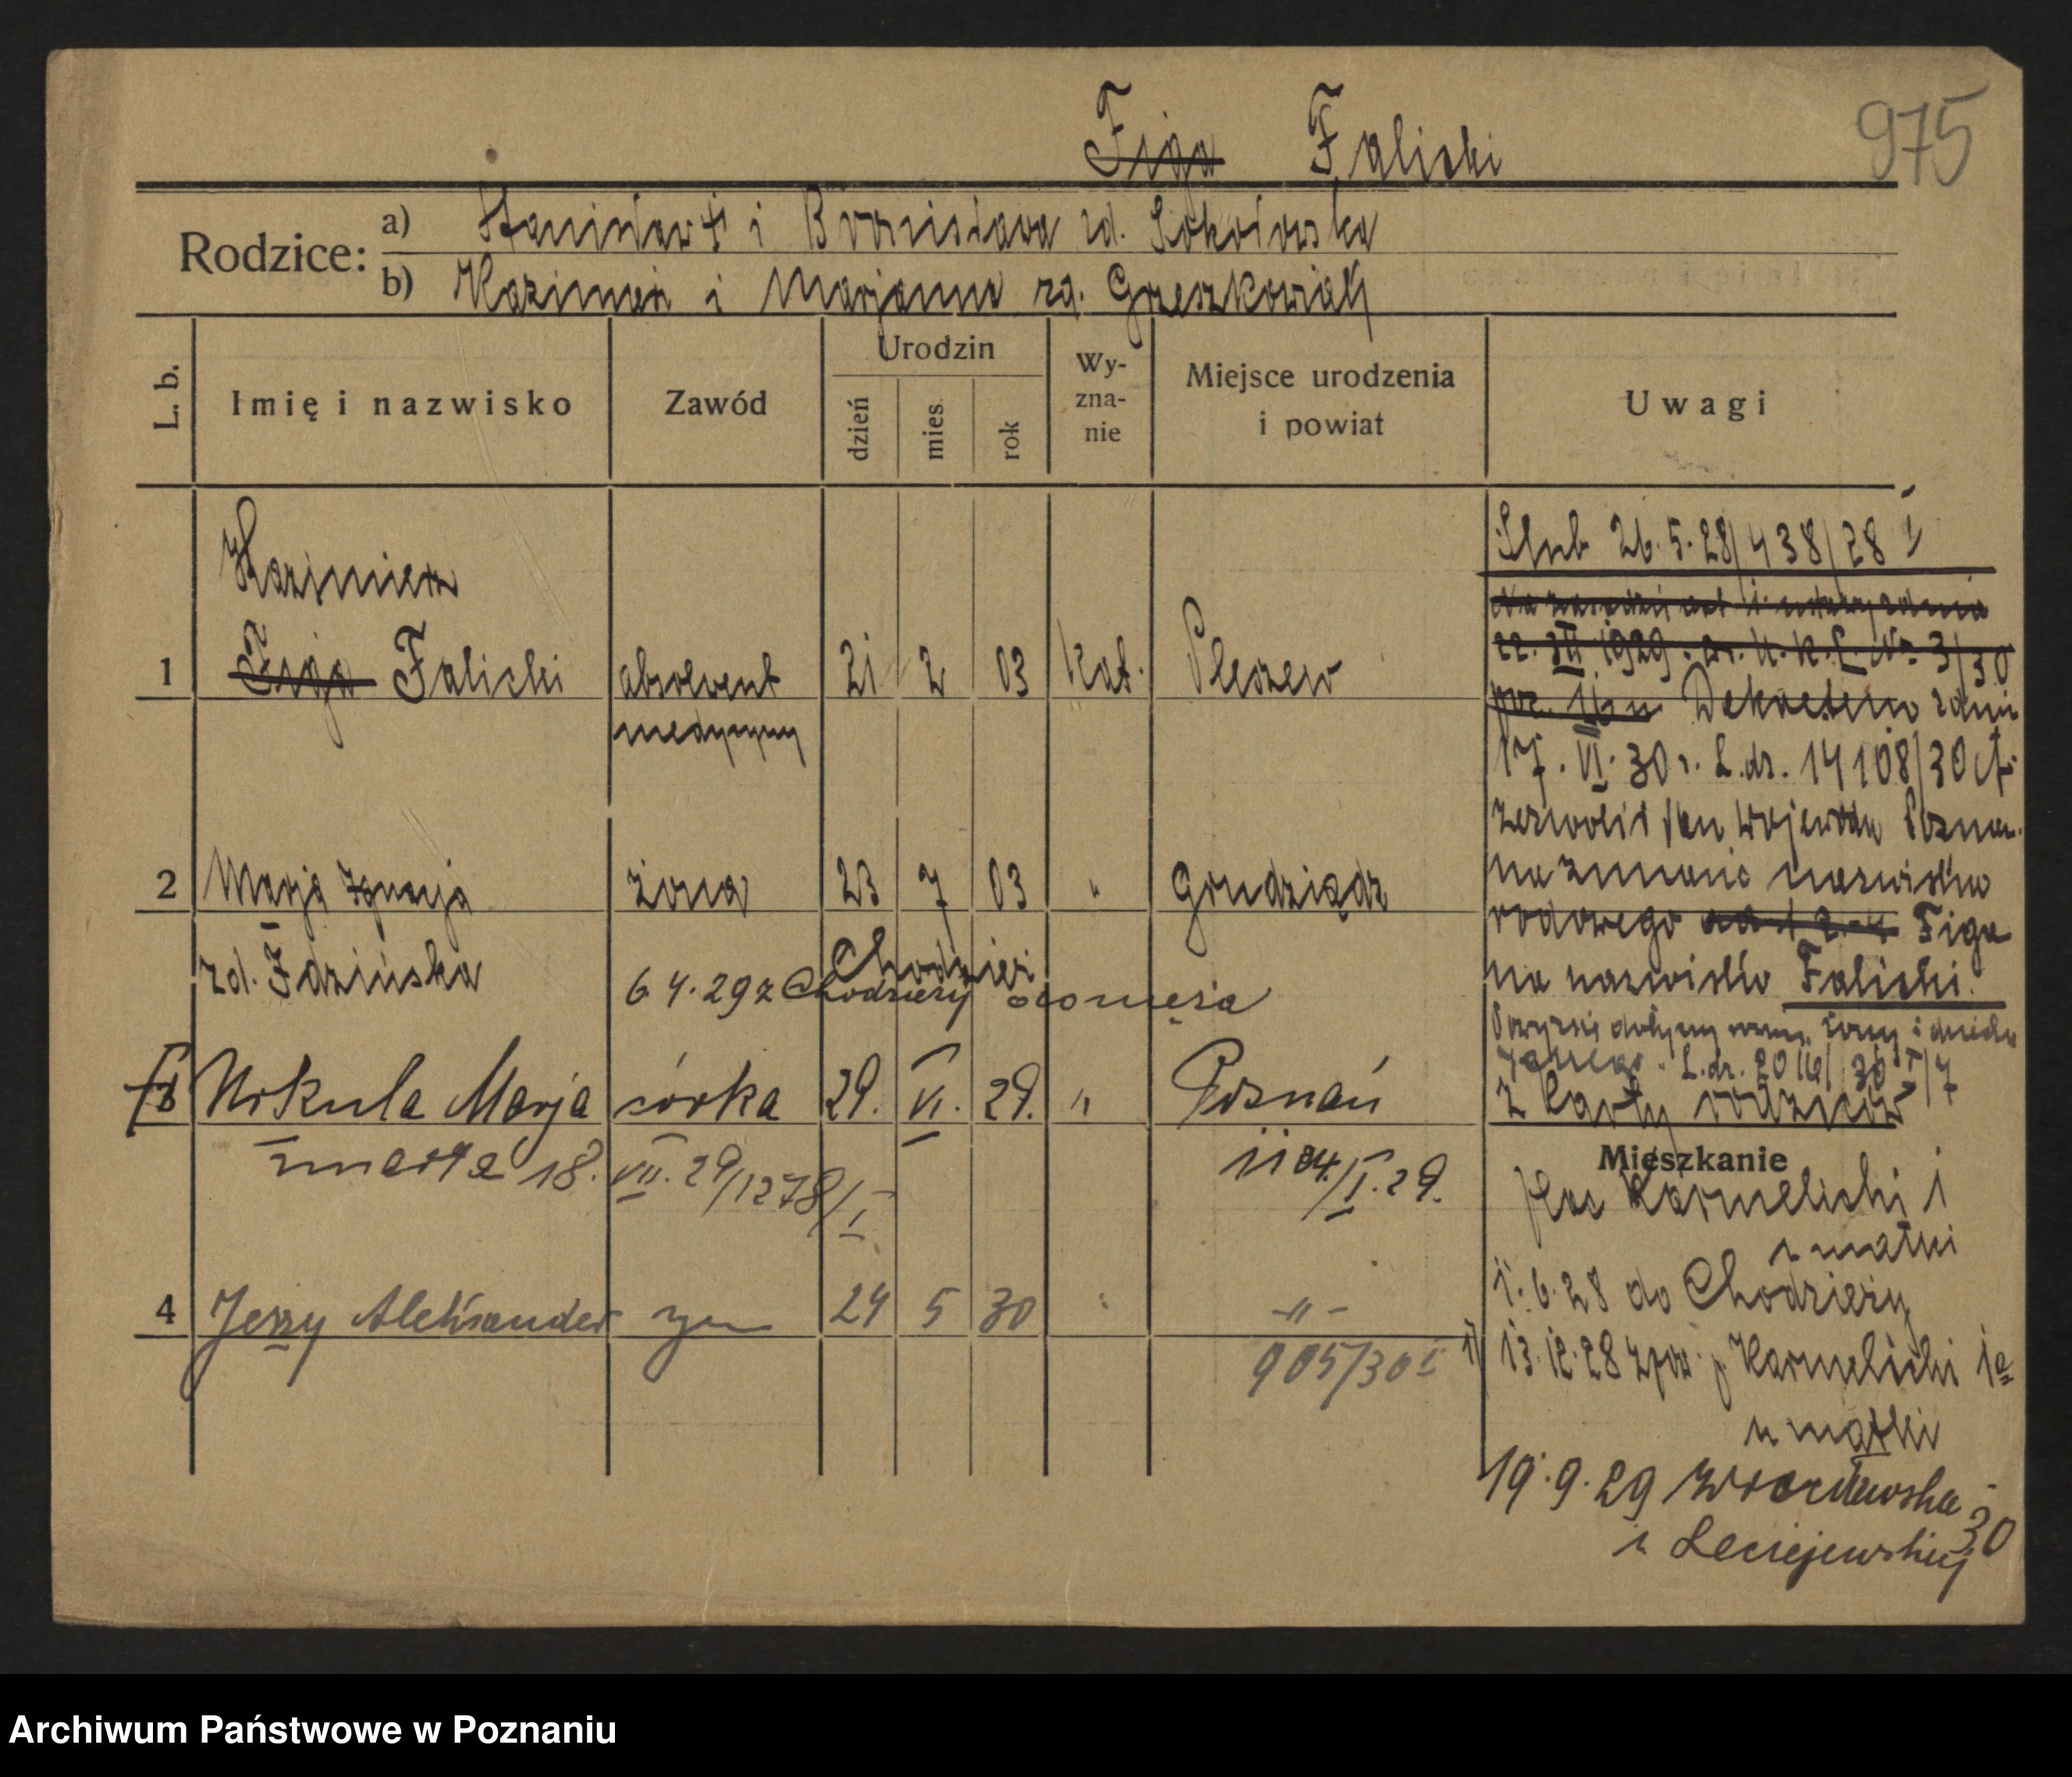 Figa Falicki 975
Rodzice:
a) Stanisław † i Bronisława zd. Sokołowska
b) Kazimierz i Marjanna zd. Grzeszkowiak
L. b.
Imię i nazwisko
Zawód
Urodzin
dzień
mies.
rok
Wy-
zna-
nie
Miejsce urodzenia
i powiat
Uwagi
Kazimierz
1 Figa Falicki absolwent 21 2 03 kat. Pleszew
medycyny
2 Marja Ignacja żona 23 7 03 " Grudziądz
zd. Idzińska
Chodzież
6 4. 29 z Chodzieży do męża
Urszula Marja córka 29. VI. 29. " Poznań
zmarła 18. VII. 29/1278/I
1184/I. 29.
4 Jerzy Aleksander syn 24 5 30 " -"-
905/30 I
Ślub 26. 5. 28/438/28 I
Na zasadzie art 1. ustawy z dnia
22. III 1929. Nr. 3/30
poz. Dekretem z dnia
17. VI. 30 r. L.dz. 14108/30
zezwolił Pan Wojewoda Poznań.
na zmianę nazwiska
rodowego Figa
na nazwisko Falicki.
Powyższe dotyczy żony i dziecka
L.dz. 30
z karty rodziców
Mieszkanie
plac Karmelicki 1
u matki
1. 6. 28 do Chodzieży
13. 12. 28 zpow. p. Karmelicki 1a
u matki
19. 9. 29 Wrocławska 30
u Leciejewskiej
Archiwum Państwowe w Poznaniu